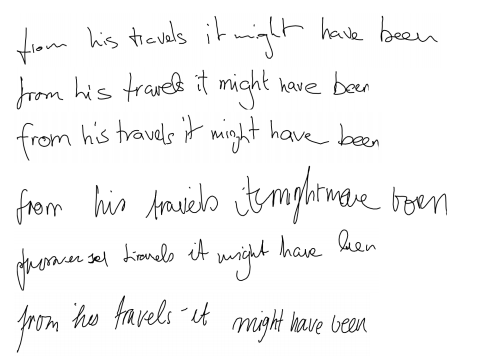 from his travels it might have been
from his travels it might have been
from his travels it might have been
from his travels it might have been
travels it might have been
from his travels it might have been